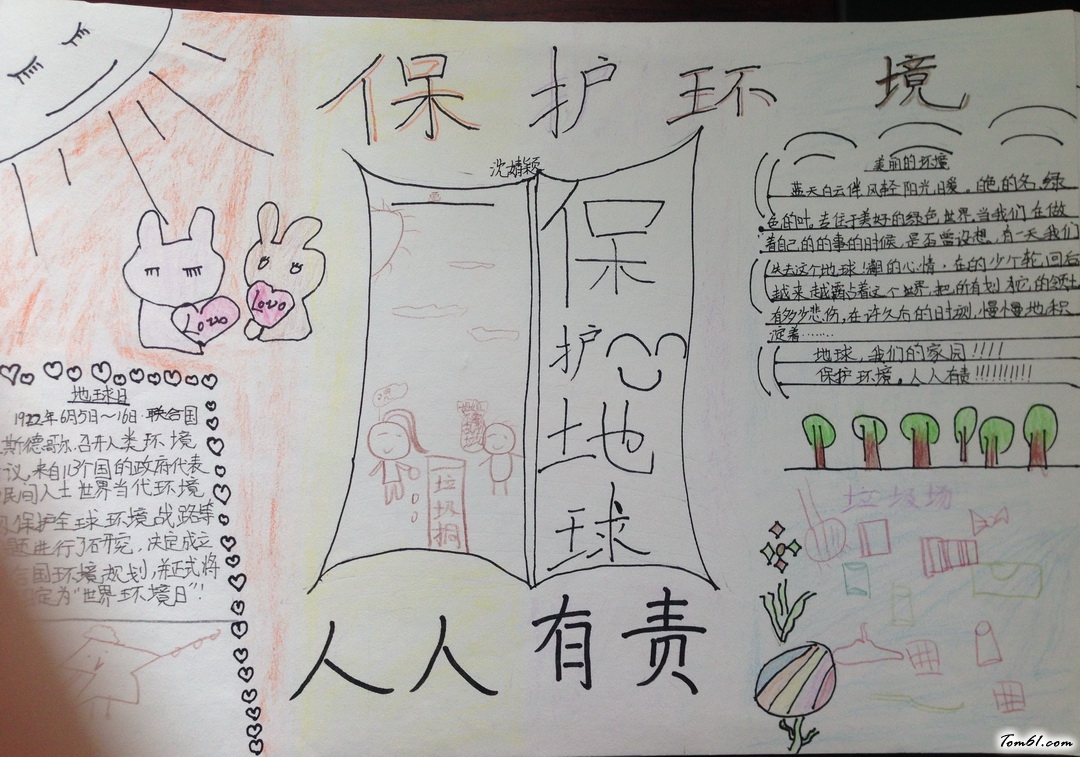 保护环境
沈婧颖
保
护
地
球
垃
圾
桶
人人有责
Love
Love
地球日
1922年6月5日～16日.联合国
斯德哥尔.召开人类环境
议,来自113个国的政府代表
民间人土世界当代环境
保护全球环境战路等
题进行了研究,决定成立
国环境规划,并正式将
定为"世界环境日"!
美丽的环境
蓝天白云伴风轻阳光,日暖。白色的名,绿
色的叶。去伍于美好的绿色世界.当我们在做
着自己的的事的时候.是否曾设想,有一天我们
失去这个地球,的心情,在的少个轮回后
越来越霸占着这个世界,把所有划为它的领土
有多少悲伤,在许久后的日时刻,慢慢地积
淀着………
地球,我们的家园!!!!
保护环境,人人有责!!!!!!!!!!
垃圾场
Tom61.com